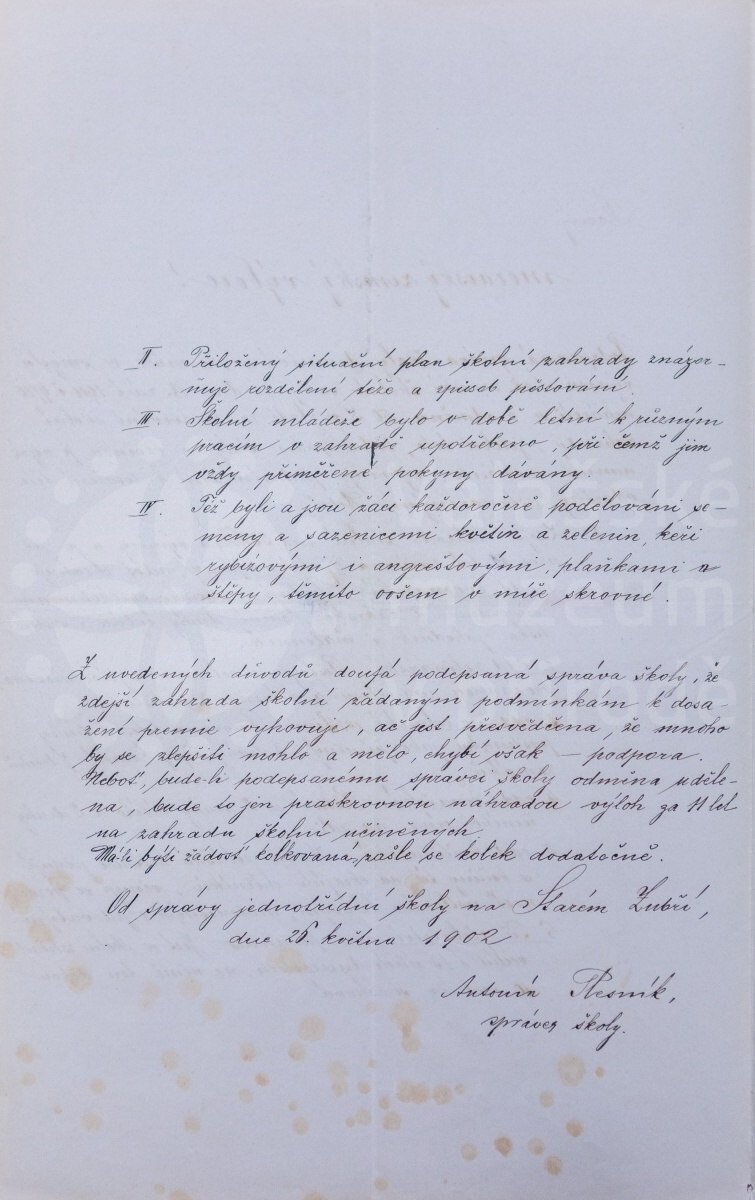 II. Přiložený situační plan školní zahrady znázor-
ňuje rozdělení téže a spůsob pěstování.
III Školní mládeže bylo v době letní k různým
pracím v zahradě upotřebeno, při čemž jim
vždy přiměřené pokyny dávány.
IV. Též byli a jsou žáci každoročně podělováni se-
meny a sazenicemi květin a zelenin, keři
rybízovými i angreštovými, plaňkami a
štěpy, těmito ovšem v míře skrovné.
Z uvedených důvodů doufá podepsaná správa školy, že
zdejší zahrada školní žádaným podmínkám k dosa-
žení premie vyhovuje, ač jist přesvědčena, že mnoho
by se zlepšiti mohlo a mělo, chybí však – podpora.
Neboť, bude-li podepsanému správci školy odměna uděle-
na, bude to jen praskrovnou náhradou výloh za 11 let
na zahradu školní učiněných.
Má-li býti žádosť kolkovaná, zašle se kolek dodatočně.
Od správy jednotřídní školy na Starém Zubří,
dne 25. května 1902
Antonín Plesník,
správce školy.
muzeum